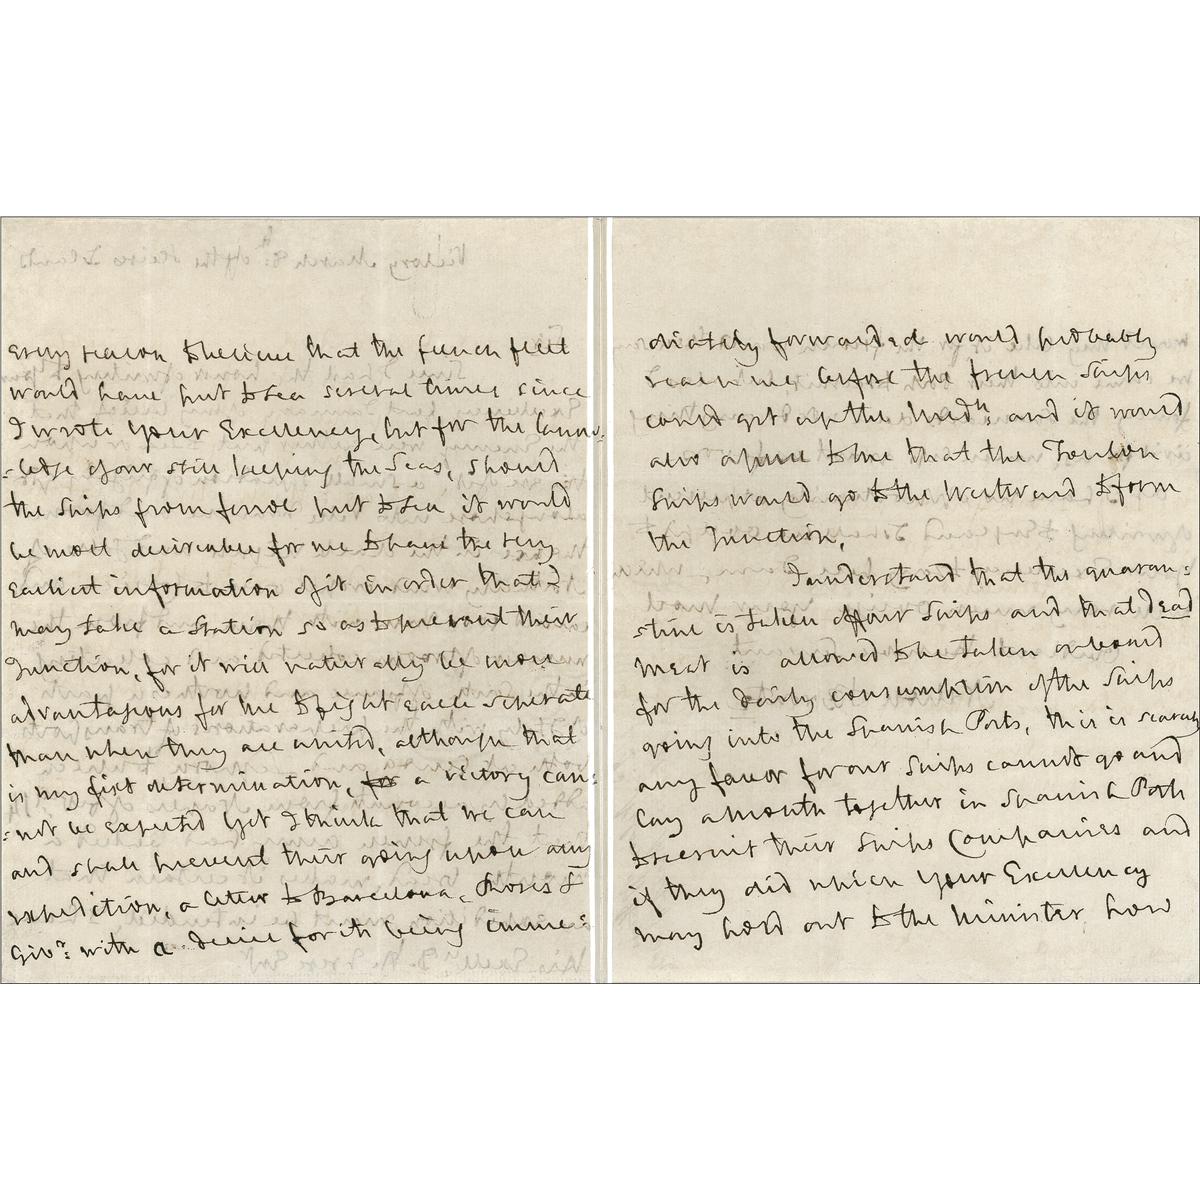 every reason to believe that the french fleet
would have put to sea several times since
I wrote your Excellency, but for the know=
=ledge of our still keeping the seas, should
the ships from ferrol put to sea it would
be most desireable for me to have the very
earliest information of it in order that I
may take a station so as to prevent their
Junction, for it will naturally be more
advantagious for me to fight each seperate
than when they are united, although that
is my first determination, for a victory can=
=not be expected yet I think that we can
and shall prevent their going upon any
expedition, a letter to Barcelona, Roses &
with a desire for its being imme=
diately forwarded would probably
reach me before the french ships
could get up the Medn. and it would
also apprise to me that the Toulon
ships would go to the Westward to form
the Junction.
I understand that the quaran=
=tine is taken off our ships and that dead
meat is allowed to be taken on board
for the daily consumption of the ships
going into the Spanish Ports, this is scarcely
any favor for our ships cannot go and
lay a month together in Spanish Ports
to recruit their ships companies and
if they did which your Excellency
may hold out to the Minister, how
Victory March 8th off the Hieres Islands